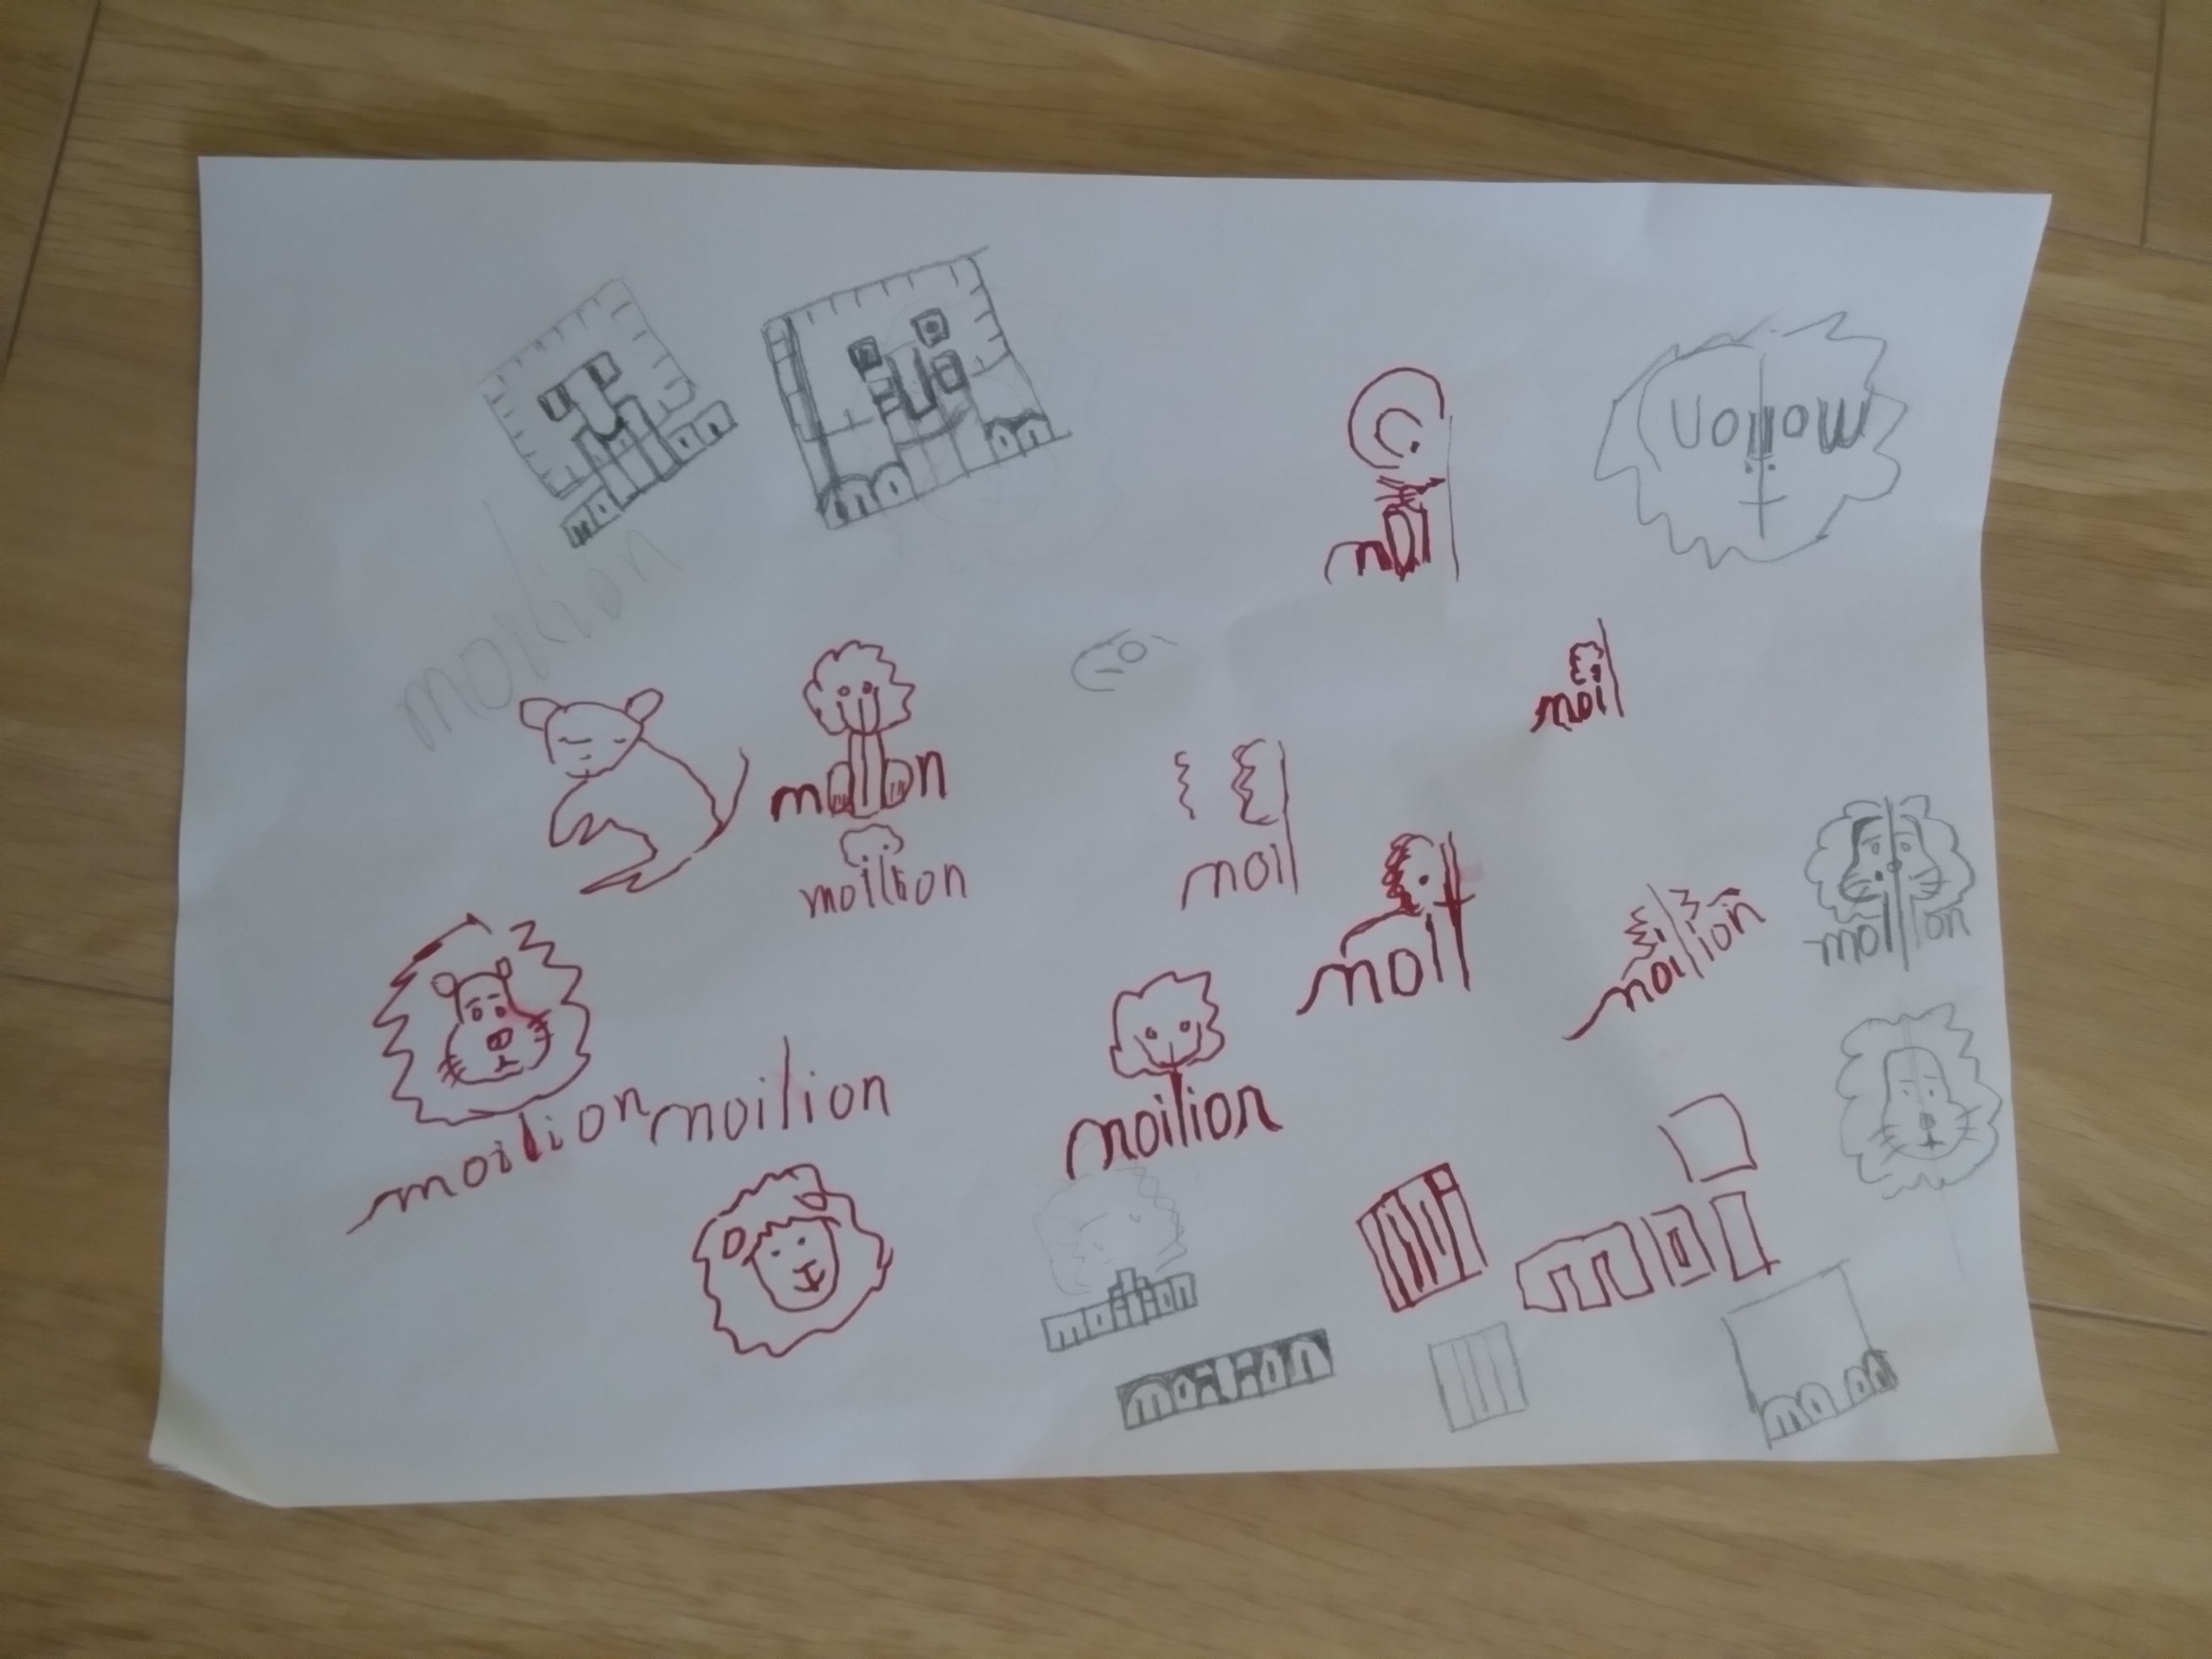 moilion
moilion
moi
moilion
moilion
moilion
moil
moil
moil
moilion
moilion
moilion
moilion
moilion
moi
moilion
moilion
mo on